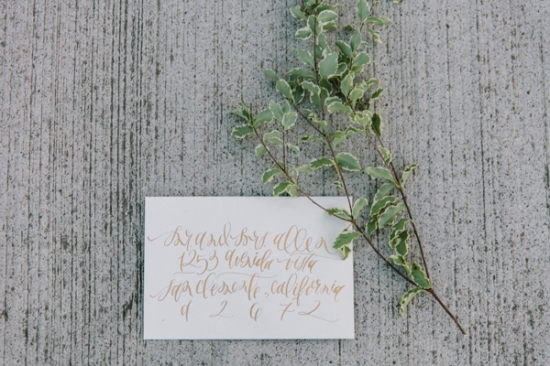 mr and mrs allen
1253 avenida vista
san clemente, california
9 2 6 7 2